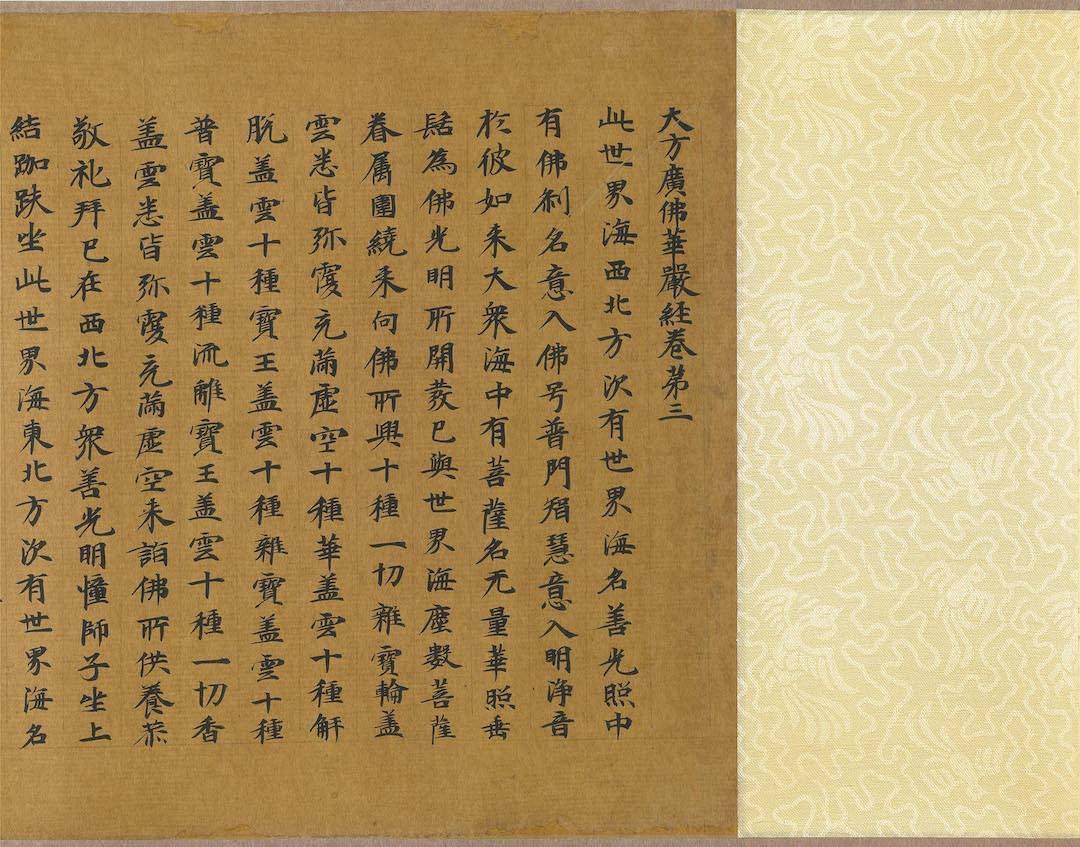 大方廣佛華嚴經卷第三
此世界海西北方次有世界海名善光照中
有佛刹名意入佛号普門智慧意入明淨音
於彼如来大衆海中有菩薩名无量華照垂
髻為佛光明所開發已與世界海塵數菩薩
眷属圍繞来向佛所興十種一切雜寶輪盖
雲悉皆弥覆充滿虚空十種華盖雲十種解
脫盖雲十種寶王盖雲十種雜寶盖雲十種
普寶盖雲十種流離寶王盖雲十種一切香
盖雲悉皆弥覆充滿虚空来詣佛所供養恭
敬礼拜已在西北方衆善光明憧師子坐上
結跏趺坐此世界海東北方次有世界海名